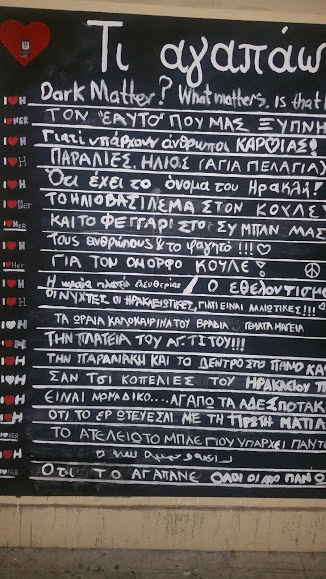 Τι αγαπάω
I H Dark Matter? What matters. is that
I HER ΤΟΝ "ΕΑΥΤΟ" ΠΟΥ ΜΑΣ ΞΥΠΝΗ
I H Γιατί υπάρχουν άνθρωποι ΚΑΡΔΙΑΣ!
I H ΠΑΡΑΛΙΕΣ, ΗΛΙΟΣ (ΑΓΙΑ ΠΕΛΑΓΙΑ)
I H Ότι έχει το όνομα του Ηρακλή!
I Her ΤΟ ΗΛΙΟΒΑΣΙΛΕΜΑ ΣΤΟΝ ΚΟΥΛΕ
I HER ΚΑΙ ΤΟ ΦΕΓΓΑΡΙ ΣΤΟ ΣΥΜΠΑΝ ΜΑΣ
I H Τους ανθρώπους & το φαγητό!!!
I Her ΓΙΑ ΤΟΝ ΟΜΟΡΦΟ ΚΟΥΛΕ!
I H Η ωραία πλατεία ελευθερίας / Ο εθελοντισμο
I H ΟΙ ΝΥΧΤΕΣ ΟΙ ΗΡΑΚΛΕΙΩΤΙΚΕΣ, ΓΙΑΤΙ ΕΙΝΑΙ ΑΛΛΙΩΤΙΚΕΣ!!!
I H ΤΑ ΩΡΑΙΑ ΚΑΛΟΚΑΙΡΙΝΑ ΤΟΥ ΒΡΑΔΙΑ ΓΕΜΑΤΑ ΜΑΓΕΙΑ
I H ΤΗΝ ΠΛΑΤΕΙΑ ΤΟΥ ΑΣΤΙΤΟΥ!!!
I H ΤΗΝ ΠΑΡΑΝΙΑΚΗ ΚΑΙ ΤΟ ΔΕΝΤΡΟ ΣΤΟ ΠΑΝΩ ΚΑ
I H ΣΑΝ ΤΣΙ ΚΟΠΕΛΙΕΣ ΤΟΥ ΗΡΑΚΛΕΙΟΥ
I H ΕΙΝΑΙ ΝΟΜΑΔΙΚΟ... ΑΓΑΠΩ ΤΑ ΑΔΕΣΠΟΤΑΚ
I H ΟΤΙ ΤΟ ΕΡΩΤΕΥΕΣΑΙ ΜΕ ΤΗ ΠΡΩΤΗ ΜΑΤΙΑ
I HER ΤΟ ΑΤΕΛΕΙΩΤΟ ΜΠΛΕ ΠΟΥ ΥΠΑΡΧΕΙ ΠΑΝΤΟ
I H
I HER Ότι ΤΟ ΑΓΑΠΑΝΕ ΟΛΟΙ ΟΙ ΠΑΝΟ